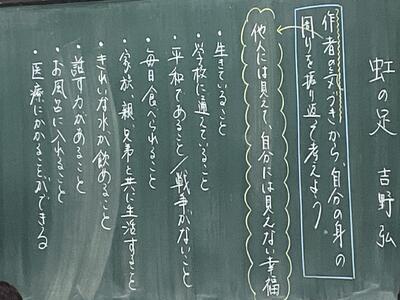 虹の足　吉野弘
作者の気づきから、自分の身の
周りを振り返って考えよう。
他人には見えて、自分には見えない幸福
・生きていること
・学校に通っていること
・平和であること／戦争がないこと
・毎日食べられること
・家族、親、兄弟と共に生活すること
・きれいな水が飲めること
・話す力があること
・お風呂に入れること
・医療にかかることができる